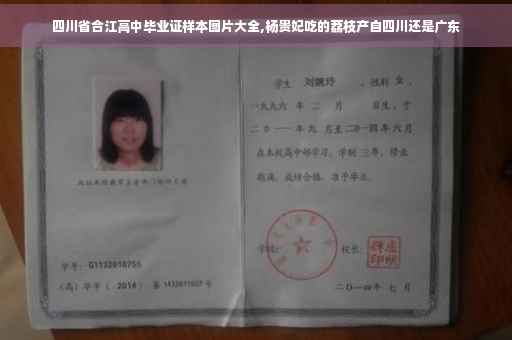 四川省合江高中毕业证样本图片大全,杨贵妃吃的荔枝产自四川还是广东
学生 刘婉玲 ，性别 女 ，
一九九六 年 二 月 日生，于
二〇一一 年 九 月至 二〇一四 年 六 月
在本校高中部学习，学制 三 年，修业
期满，成绩合格，准予毕业。
学号： G1132010755
校长：
(高) 毕字 ( 2014 ) 第 1432011007 号
二〇一四年 七 月